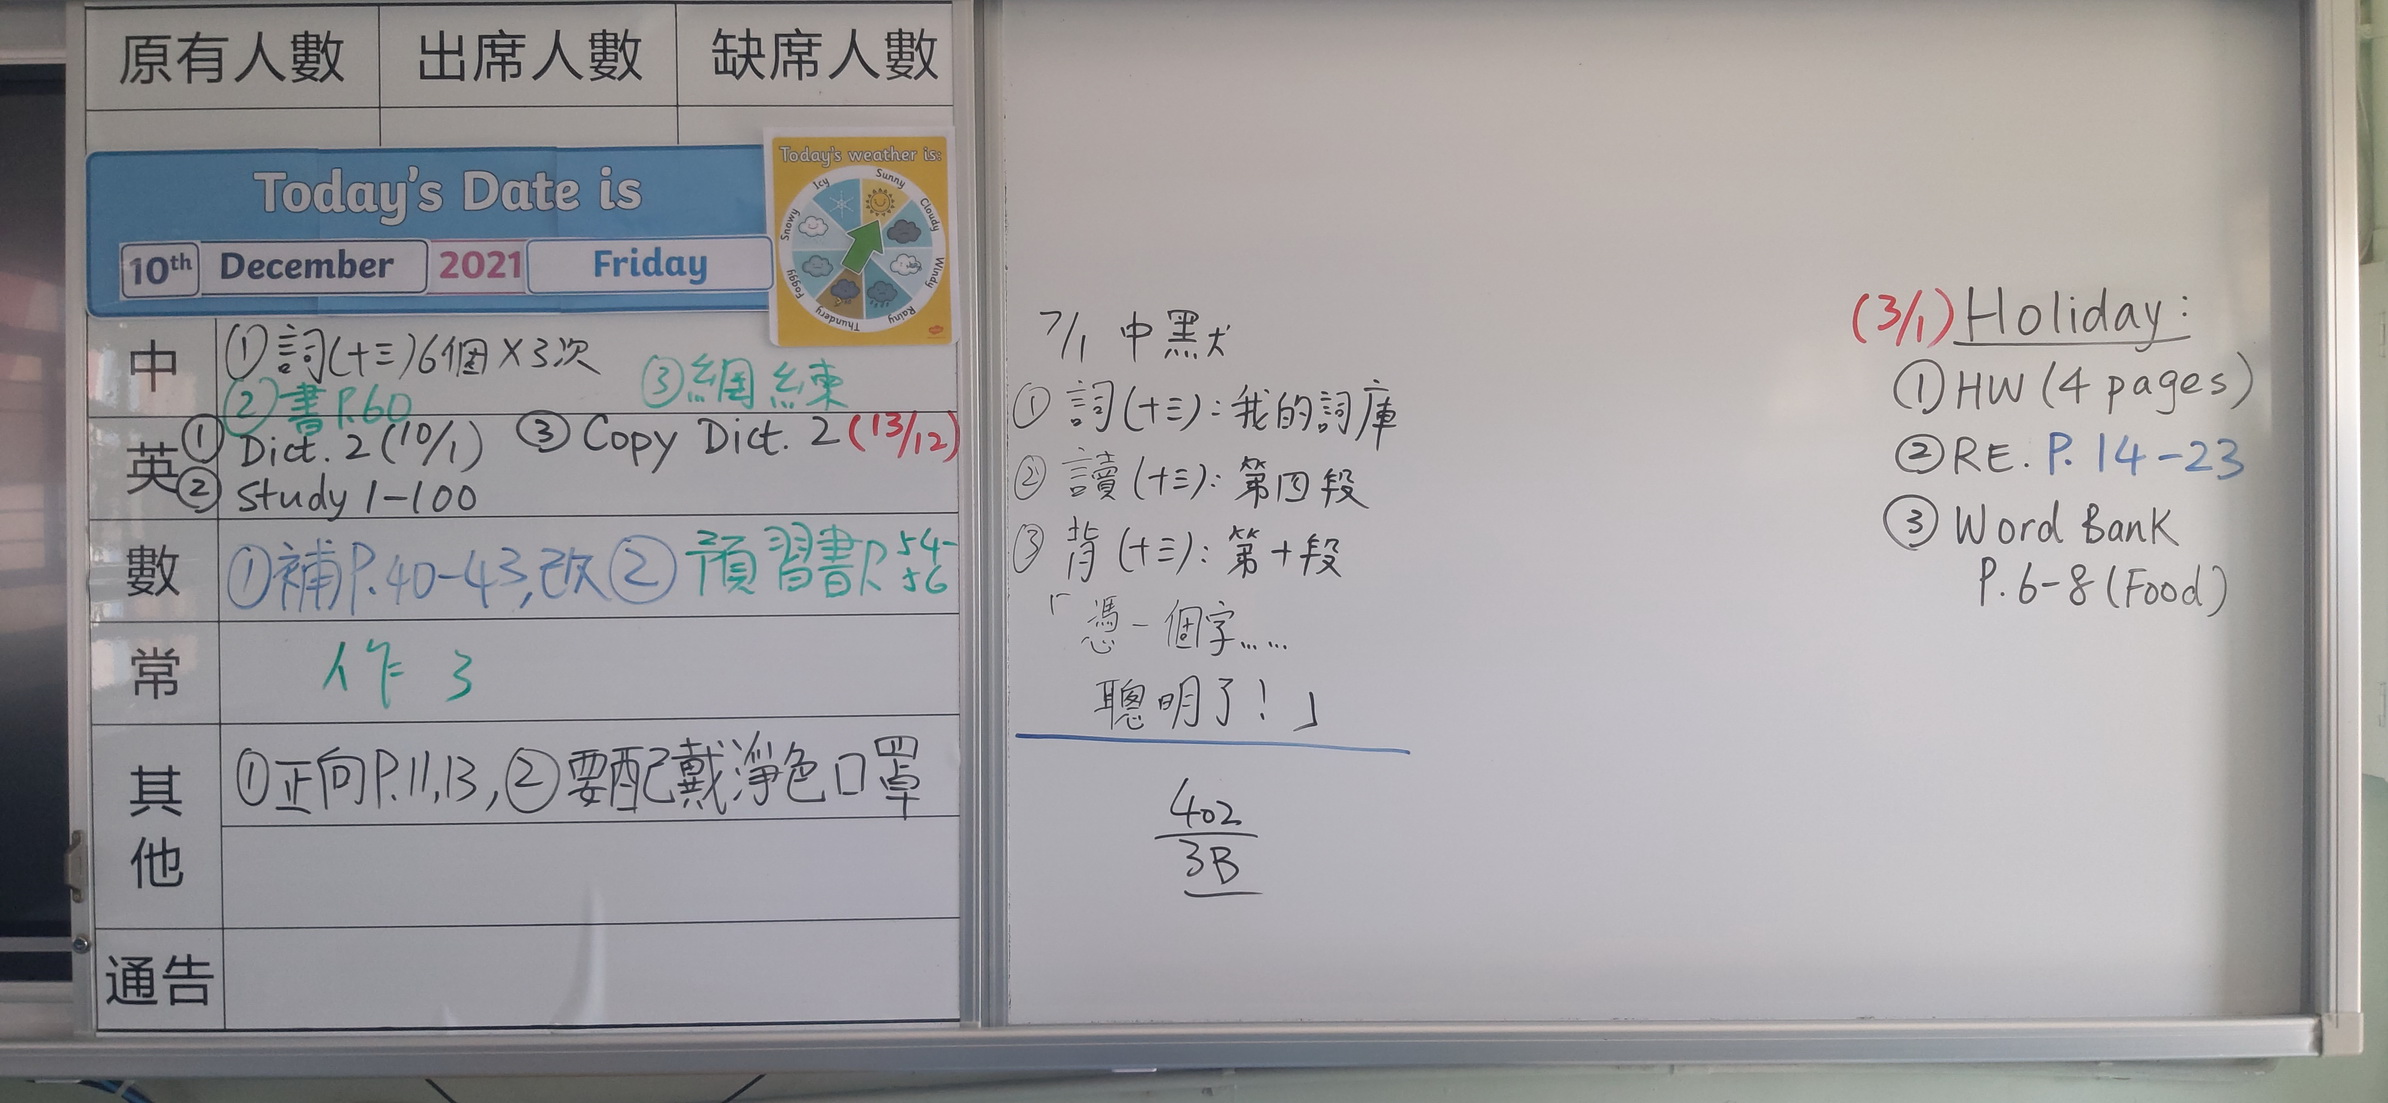 原有人數 出席人數 缺席人數
Today's Date is
10th December 2021 Friday
Today's weather is:
Sunny
Cloudy
Windy
Rainy
Thundery
Foggy
Snowy
Icy
中 ①詞(十三)6個×3次
②書P.60 ③網練
英 ① Dict. 2 (10/1) ③ Copy Dict. 2 (13/12)
② study 1-100
數 ①補P.40-43,改 ②預習書P.54-56
常 作 3
其他 ①正向P.11,13,②要配戴淨色口罩
通告
7/1 中默
① 詞(十三):我的詞庫
② 讀(十三):第四段
③ 背(十三):第十段
「憑一個字……
聰明了!」
402
3B
(3/1) Holiday:
① HW (4 pages)
② RE. P. 14-23
③ Word Bank
P. 6-8 (Food)